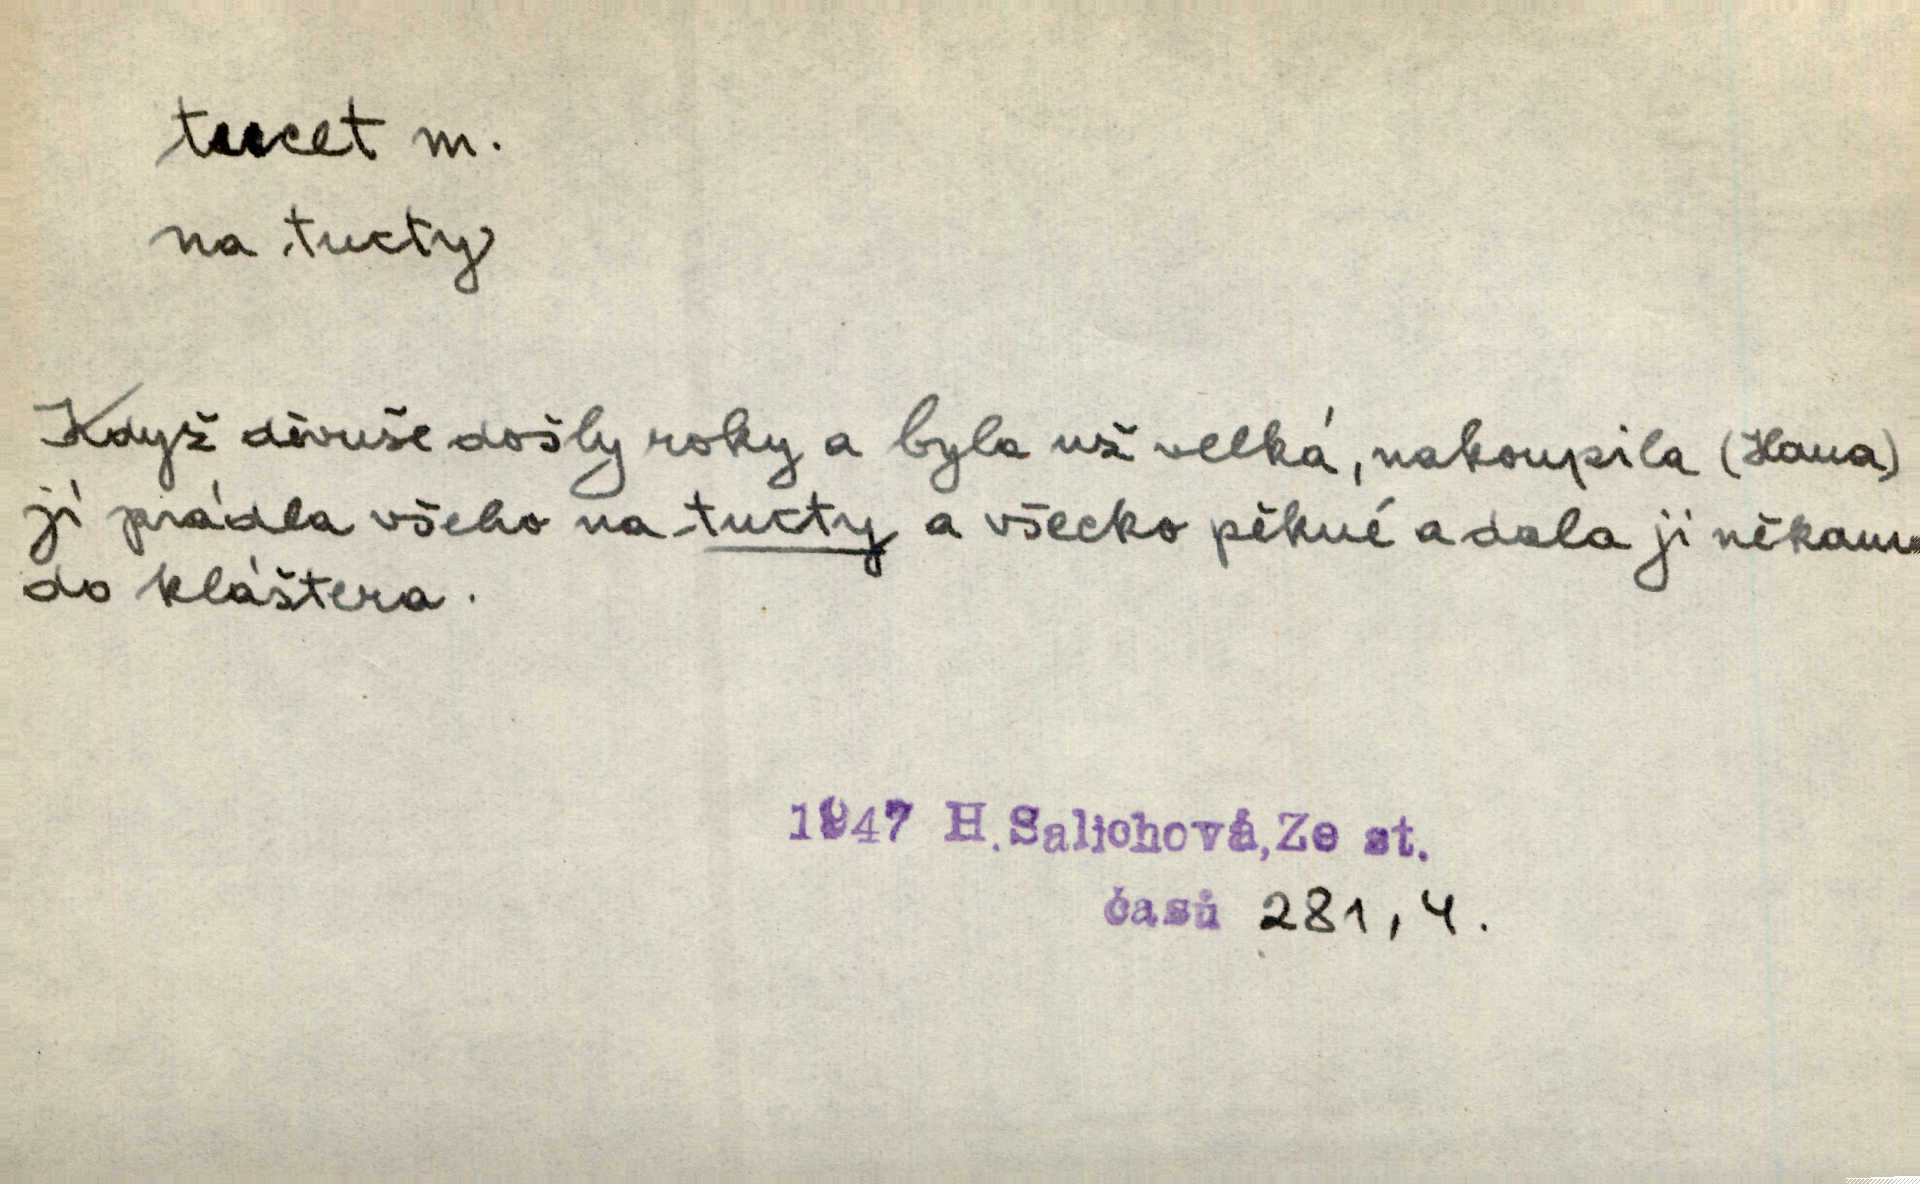 tucet m.
na tucty
Když děvuše došly roky a byla už velká, nakoupila (Hana)
jí prádla všeho na tucty a všecko pěkné a dala ji někam
do kláštera.
1947 H.Salichová,Ze st.
časů 281,4.